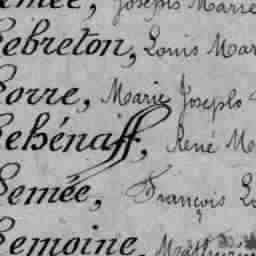 Lemée, Joseph Marie
Lebreton, Louis Mar
Lorre, Marie Joseph
Lehénaff, René M
Lemée, François Lo
Lemoine, Mathurin